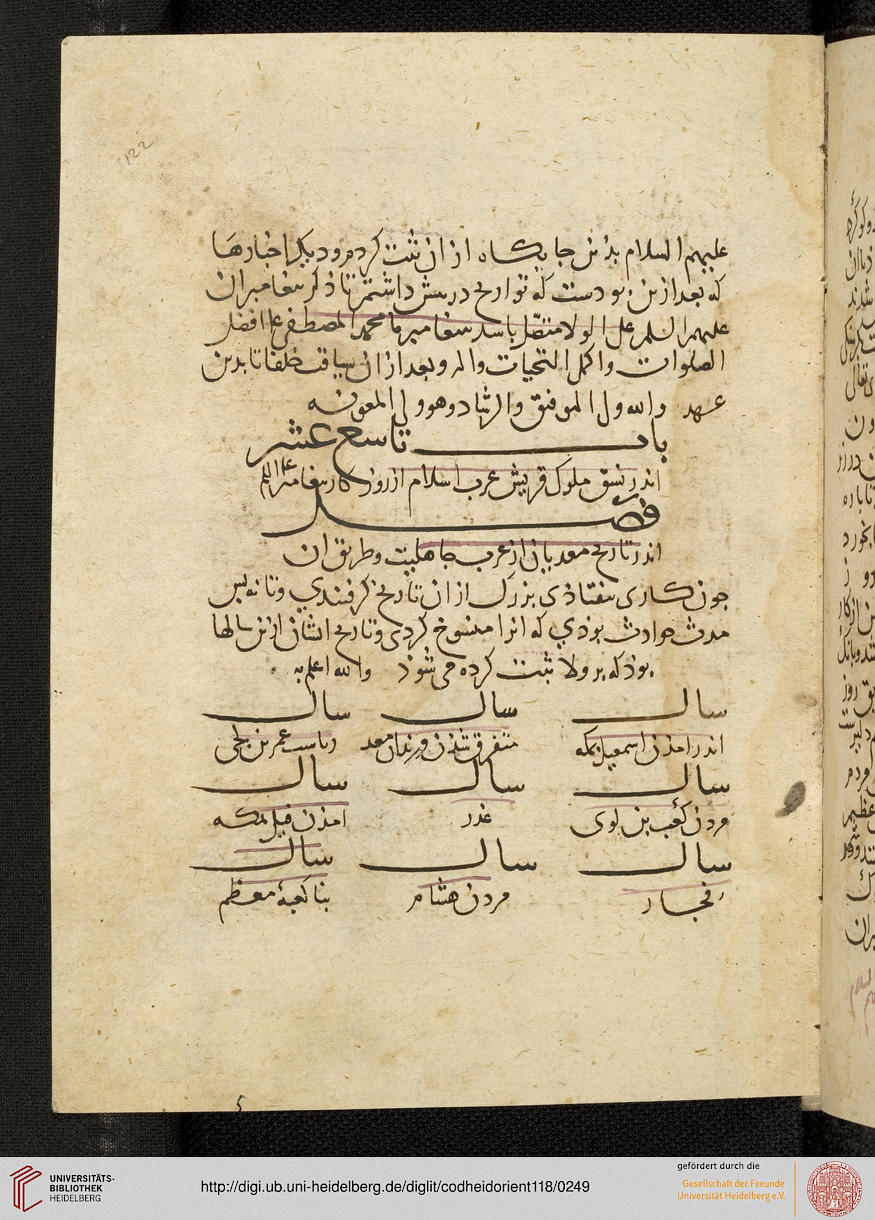 122
علیهم السلام بذین جایکاه از ان ثبت کردم و دیکر اخبارها
که بعد ازین بودست که تواریخ در پیش داشتم تا ذکر پیغامبران
علیهم السلم علی الولا متصل باشد بپیغامبر ما محمد المصطفی علیه افضل
الصلوات و اکمل التحیات واله و بعد از ان سیاقت خلفا تا بدین
عهد والله ولی الموفق والرشاد وهو ولی المعونه
باب تاسع عشر
اندر نسق ملوک قریش عرب اسلام از روزکار پیغامبر علیه السلم
فصل
اندر تاریخ معدیان از عرب جاهلیت و طریق ان
جون کاری بیفتاذی بزرک از ان تاریخ کرفتندی و تا نه بس
مدت حوادث بوذی که انرا منسوخ کردی و تاریخ ایشان ازین سالها
بوذ که بر ولا ثبت کرده می شوذ والله اعلم به
سال سال سال
اندر امذن اسمعیل بمکه متفرق شذن فرزندان معد ریاست عمر بن لحی
سال سال سال
مردن کعب بن لوی غدر امذن فیل بمکه
سال سال سال
فجار مردن هشام بنا کعبهٔ معظم
UNIVERSITÄTS-
BIBLIOTHEK
HEIDELBERG
http://digi.ub.uni-heidelberg.de/diglit/codheidorient118/0249
gefördert durch die
Gesellschaft der Freunde
Universität Heidelberg e.V.